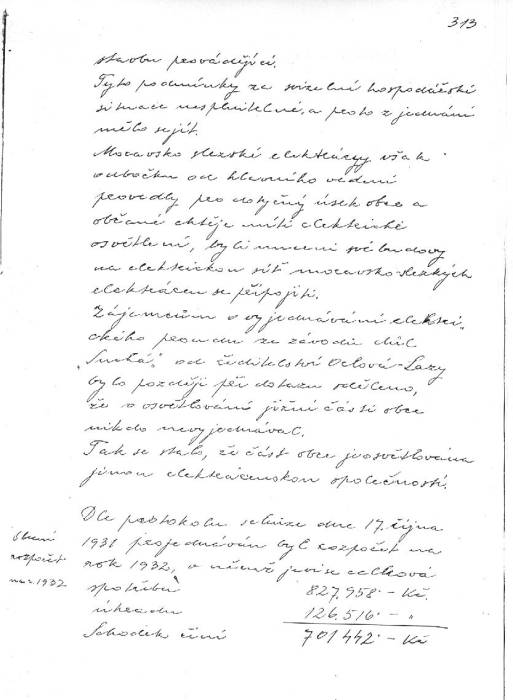 313
stavbu provádějící.
Tyto podmínky za svízelné hospodářské
situace nesplnitelné, a proto z jednání
mělo sejít.
Moravsko slezské elektrárny však
odbočku od hlavního vedení
provedly pro dotyčný úsek obce a
občané chtěje míti elektrické
osvětlení, byli nuceni své budovy
na elektrickou síť moravsko-slezských
elektráren se připojiti.
Zájemcům o vyjednávání elektri-
ckého proudu ze závodu důl
"Suchá" od ředitelství Orlová-Lazy
bylo později při dotazu sděleno,
že o osvětlování jižní části obce
nikdo nevyjednával.
Tak se stalo, že část obce jest osvětlována
jinou elektrárenskou společností.
Dle protokolu schůze dne 17. října
1931 projednáván byl rozpočet na
rok 1932, v němž jeví se celková
Obecní
rozpočet
na r. 1932
spotřeba 827.958 - Kč.
úhrada 126.516 - "
Schodek činí 701442 - Kč